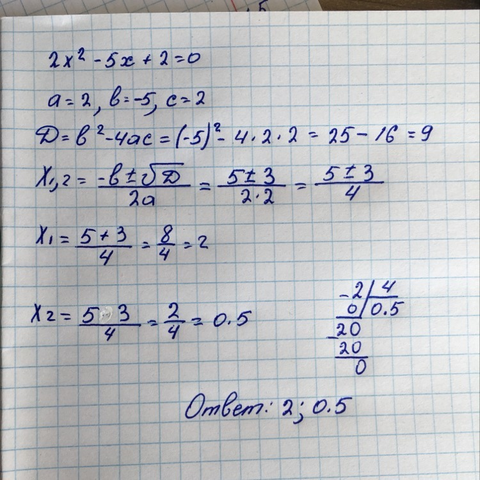 2x² - 5x + 2 = 0
a = 2, b = -5, c = 2
D = b² - 4ac = (-5)² - 4 · 2 · 2 = 25 - 16 = 9
x₁,₂ = (-b ± √D)/(2a) = (5 ± 3)/(2·2) = (5 ± 3)/4
x₁ = (5 + 3)/4 = 8/4 = 2
x₂ = (5 - 3)/4 = 2/4 = 0.5
-2 | 4
0 | 0.5
20
-20
0
Ответ: 2; 0.5